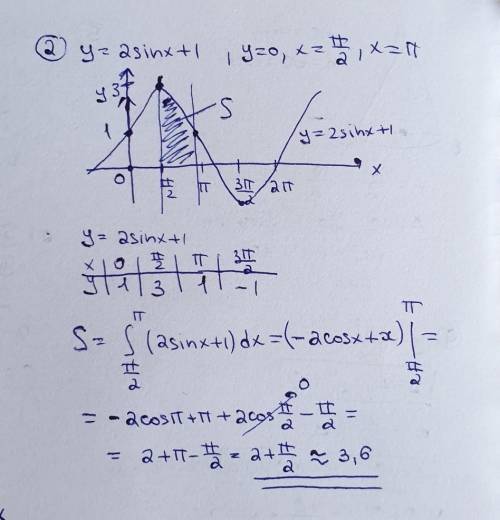 ② y = 2sinx+1 , y=0, x = π/2, x = π
y 3
S
1
y = 2sinx+1
0 π/2 π 3π/2 2π x
y = 2sinx+1
x | 0 | π/2 | π | 3π/2
y | 1 | 3 | 1 | -1
S = ∫_{π/2}^{π} (2sinx+1)dx = (-2cosx+x) |_{π/2}^{π} =
= -2cosπ+π + 2cos π/2 - π/2 = 0
= 2+π - π/2 = 2+ π/2 ≈ 3,6